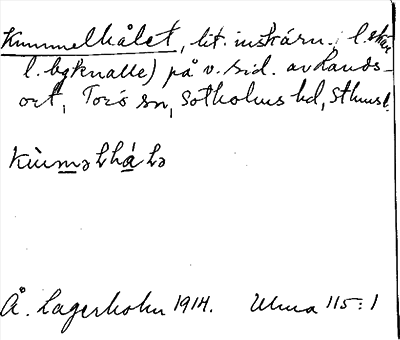 Kummelhålet, lit. inskärn. i l. skär
l. bgknalle) på v. sid. av Lands-
ort, Torö sn, Sotholms hd, Sthms l.
Kùməlhá lə
Å. Lagerholm 1914. Ulma 115:1